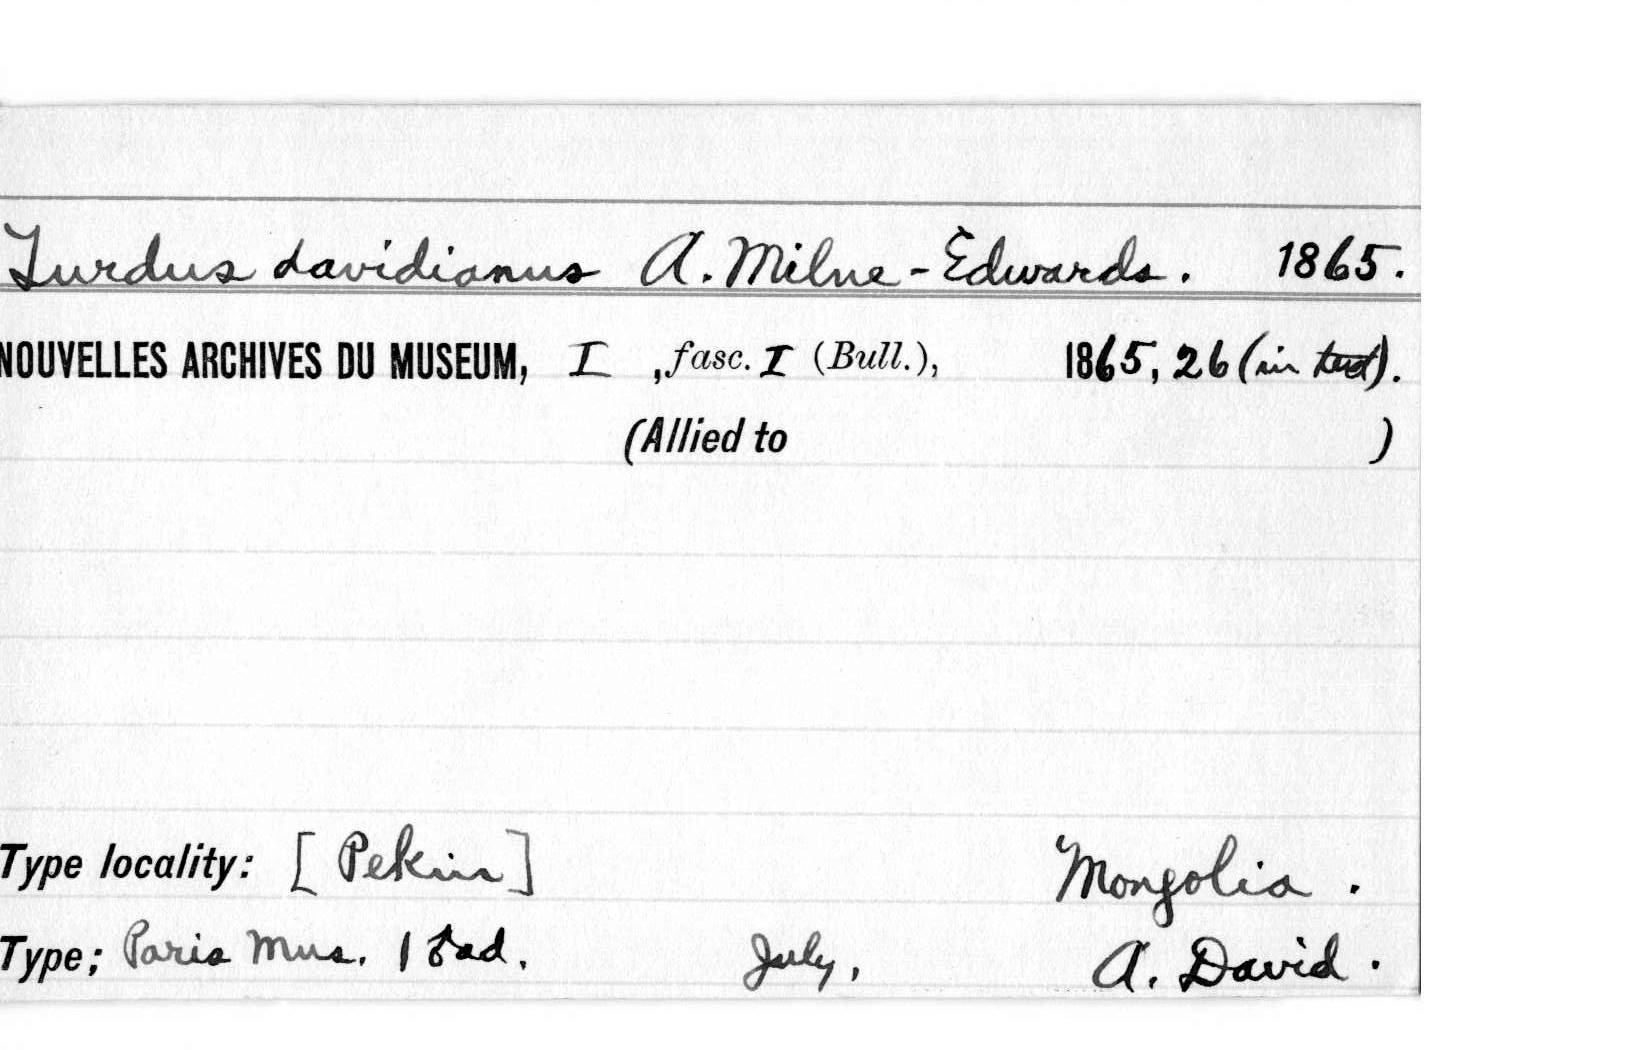 Turdus davidianus A. Milne-Edwards. 1865.
NOUVELLES ARCHIVES DU MUSEUM, I , fasc. I (Bull.), 1865, 26 (in text).
(Allied to )
Type locality: [Pekin] Mongolia .
Type; Paris Mus. 1 ♂ ad. July, A. David .